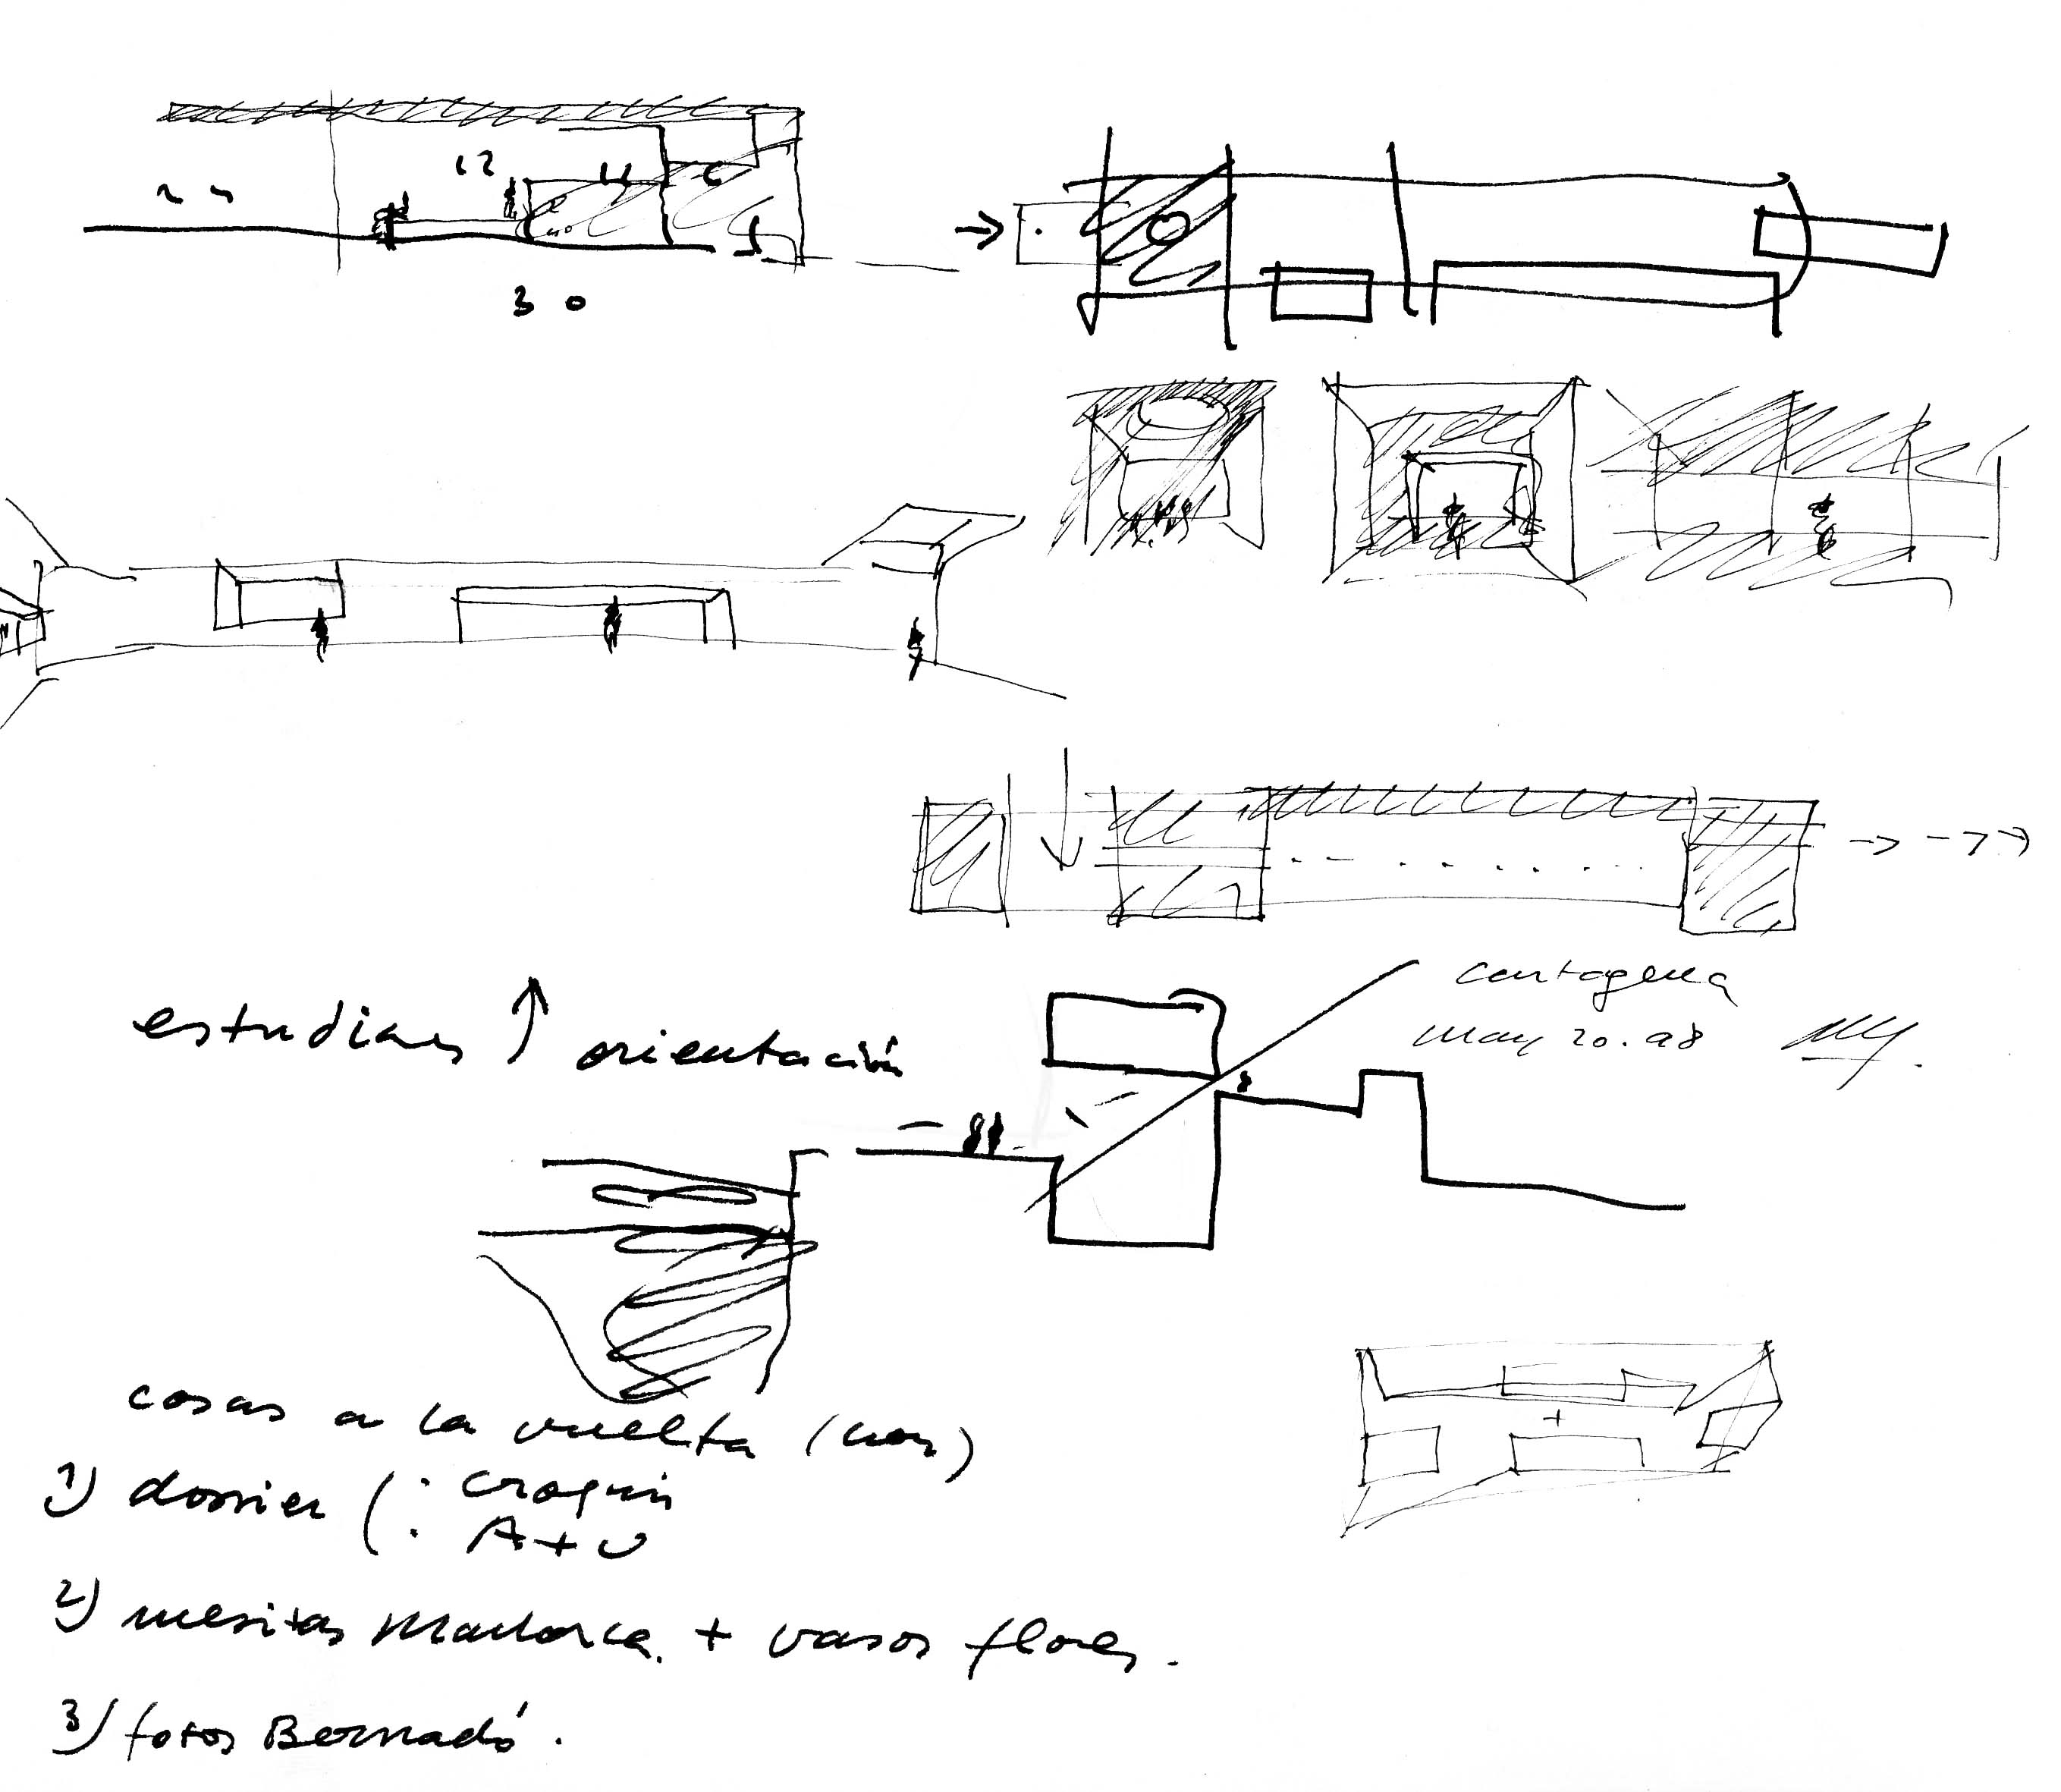 12
30
Cartagena
May 20. 98
estudiar orientación
cosas a la vuelta
1) dossier ( : croquis
: A+U
2) mesitas Mallorca + vasos flores.
3) fotos Bernadó.